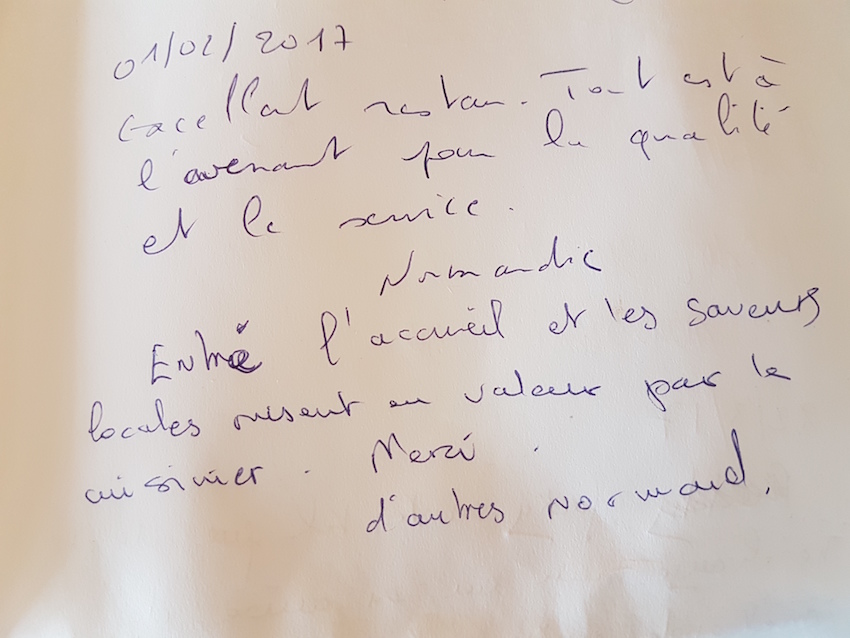 01/02/2017
Excellent restau. Tout est à
l'avenant pour la qualité
et le service.
Normandie
Entre l'accueil et les saveurs
locales misent en valeur par le
cuisinier. Merci.
d'autres Normand.